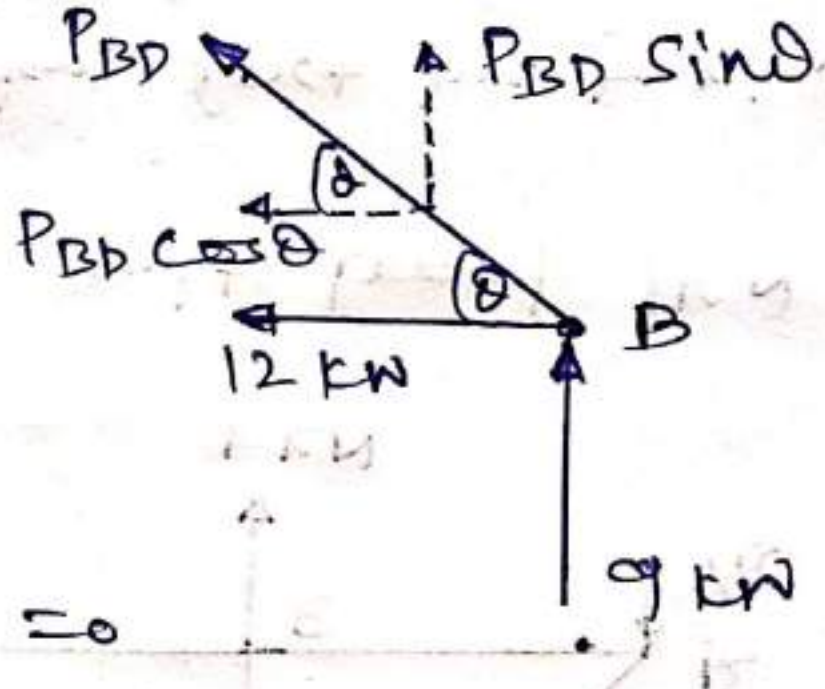 P_BD
P_BD Sinθ
θ
P_BD Cosθ
θ
B
12 KN
9 KN
=0